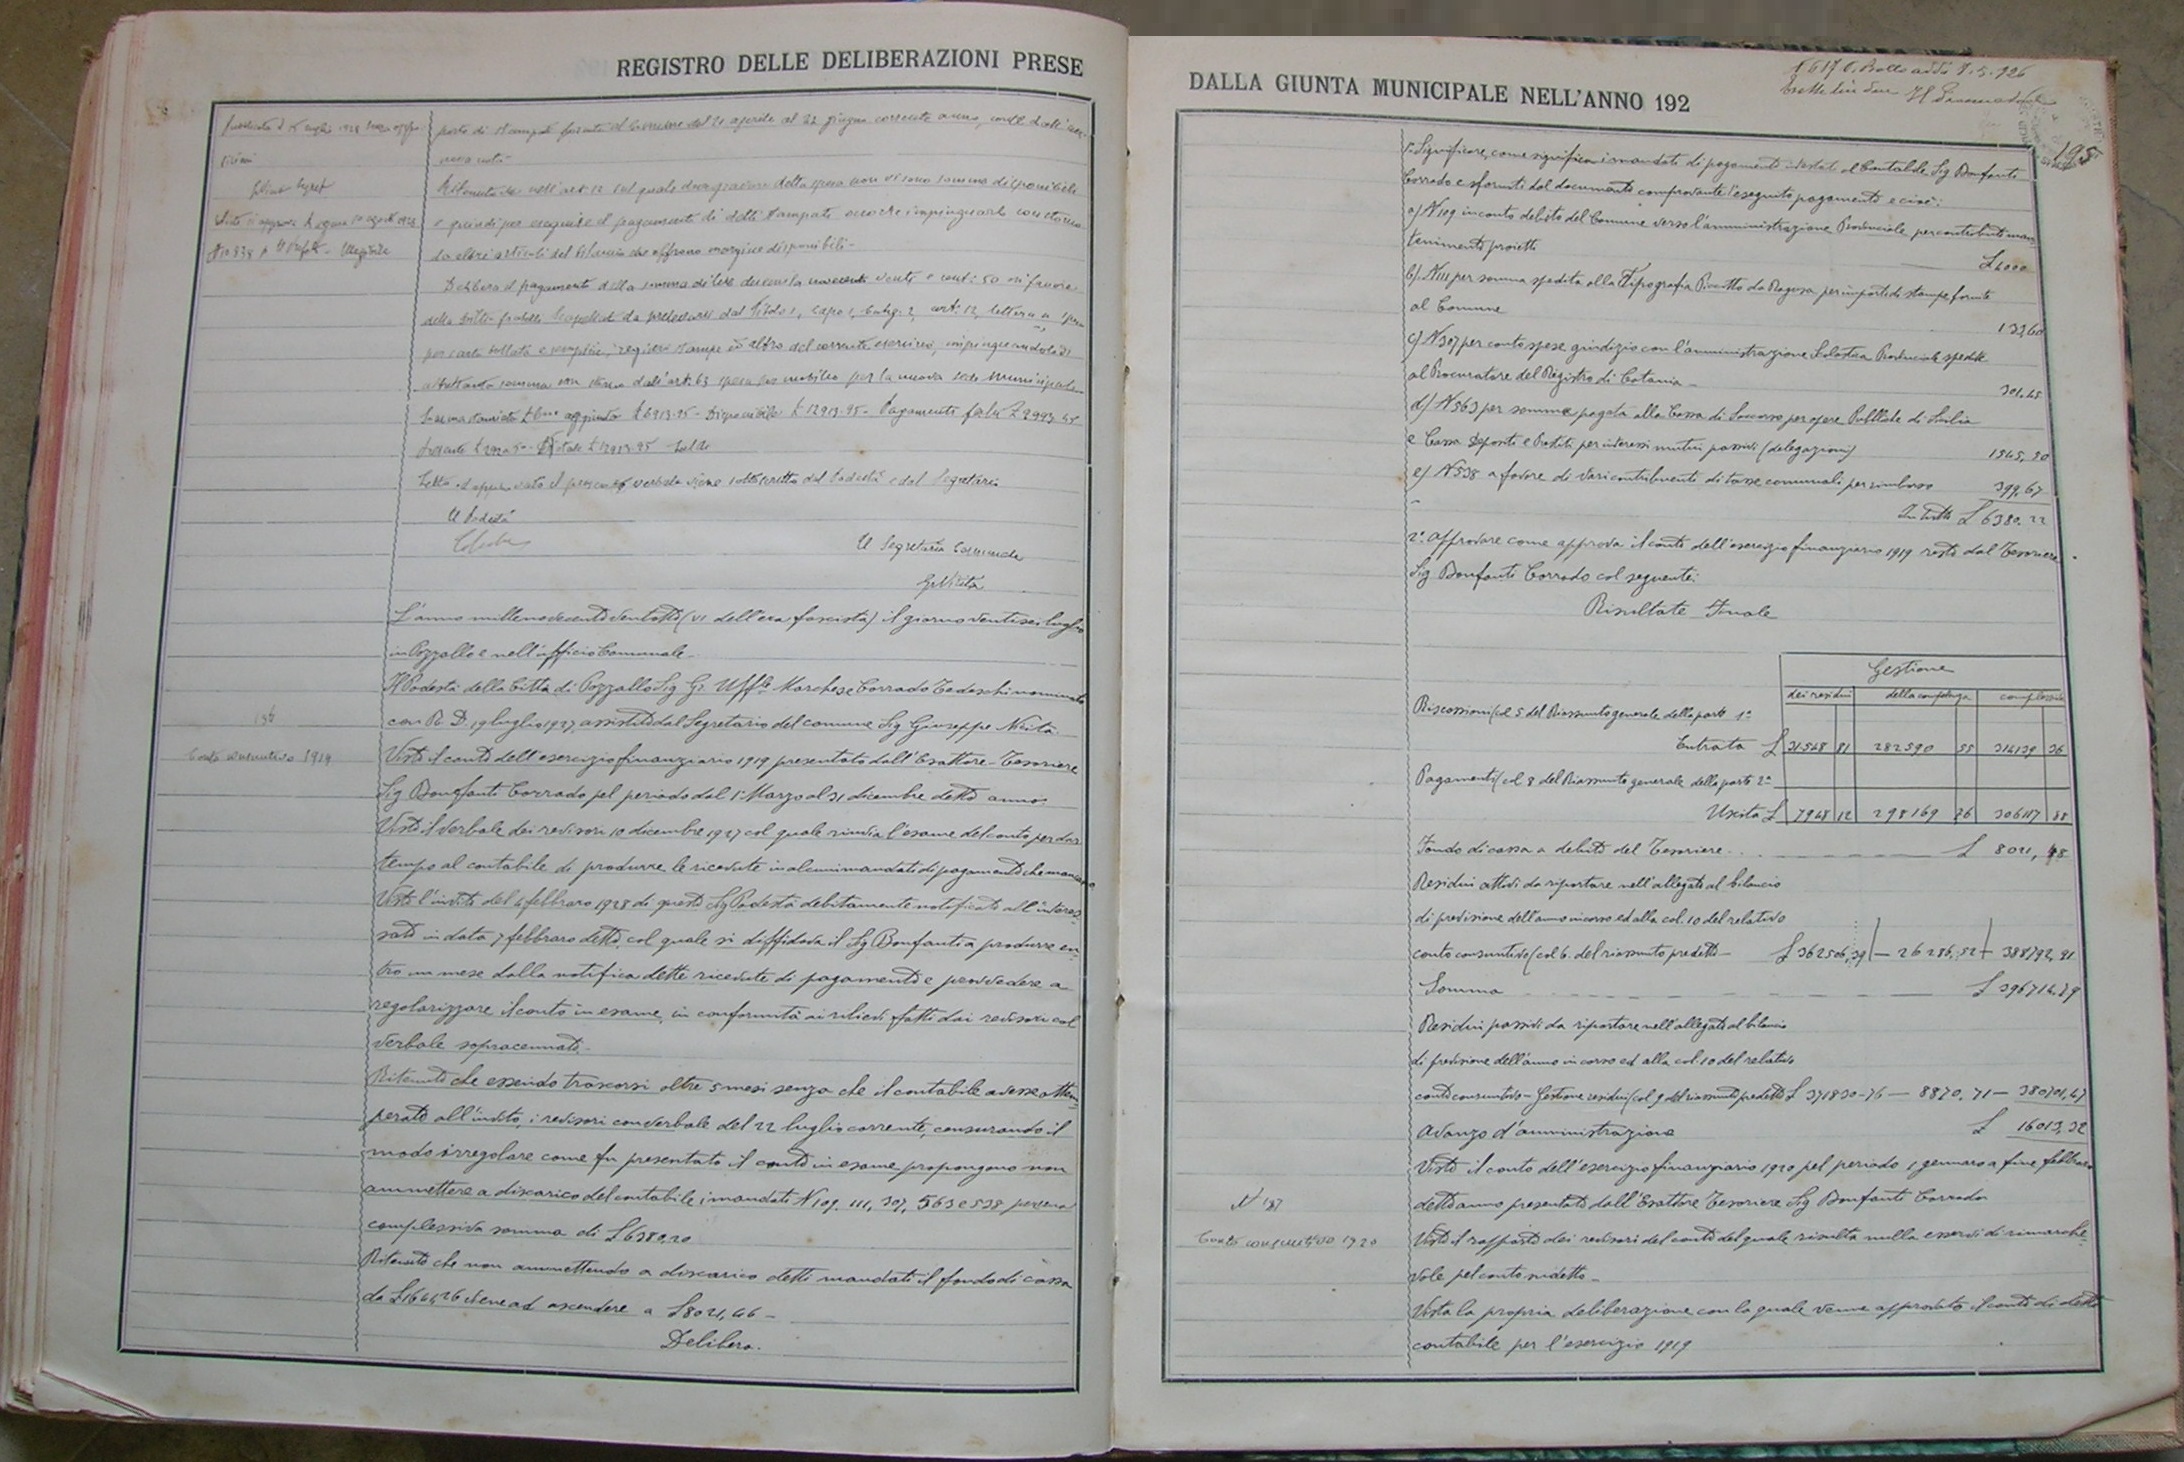 REGISTRO DELLE DELIBERAZIONI PRESE
porto di stampati forniti al Comune dal 20 aprile al 22 giugno corrente anno,
nessa nota
Ritenuto che nell'art 12 sul quale deve gravare detta spesa non vi sono somme disponibili
e quindi per eseguire il pagamento di detti stampati occorre impinguarlo con storno
da altri articoli del bilancio che offrono margine disponibili -
Delibera il pagamento della somma di lire duemila novecento venti e cent: 50 in favore
della Ditta fratelli da prelevarsi dal Titolo 1, Capo 1, Categ. 2, art: 12, lettera a spesa
per carta bollata e semplice, registri stampe ed altro del corrente esercizio, impinguandolo di
altrettanta somma con storno dall'art. 63 spesa per mobilio per la nuova sede municipale
Somma stanziata aggiunto £ 6913.95 - Disponibile £ 12913.95 - Pagamenti fatti £ 9993.45
presente £ 2920.50 - Totale £ 12913.95
Letto ed approvato il presente verbale viene sottoscritto dal Podestà e dal Segretario
Il Podestà
Il Segretario Comunale
G. Nicita
L'anno millenovecentoventotto (VI dell'era fascista) il giorno ventisei luglio
in Pozzallo e nell'ufficio Comunale -
Il Podestà della Città di Pozzallo Sig Gr. Uffle Marchese Corrado Tedeschi nominato
con R. D. 19 luglio 1927, assistito dal Segretario del comune Sig Giuseppe Nicita
Conto consuntivo 1919
Visto il conto dell'esercizio finanziario 1919 presentato dall'Esattore-Tesoriere
Sig Bonfanti Corrado pel periodo dal 1° Marzo al 31 dicembre detto anno
Visto il verbale dei revisori 10 dicembre 1927 col quale rinvia l'esame del conto per dar
tempo al contabile di produrre le ricevute in alcuni mandati di pagamento che mancano
Visto l'invito del 4 febbraro 1928 di questo Sig Podestà debitamente notificato all'interes-
sato in data 7 febbraro detto, col quale si diffidava il Sig Bonfanti a produrre en-
tro un mese dalla notifica dette ricevute di pagamento e provvedere a
regolarizzare il conto in esame, in conformità ai rilievi fatti dai revisori col
verbale sopracennato -
Ritenuto che essendo trascorsi oltre 5 mesi senza che il contabile avesse ottem-
perato all'invito, i revisori con verbale del 22 luglio corrente, censurando il
modo irregolare come fu presentato il conto in esame propongono non
ammettere a discarico del contabile i mandati N 109, 111, 307, 563 e 538 per una
complessiva somma di £ 6380,20
Ritenuto che non ammettendo a discarico detti mandati il fondo di cassa
da £ 1641,26 viene ad ascendere a £ 8021,46 -
Delibera.
DALLA GIUNTA MUNICIPALE NELL'ANNO 192
195
1° Significare, come significa i mandati di pagamento intestati al Contabile Sig Bonfanti
Corrado e sforniti dal documento comprovante l'eseguito pagamento e cioè:
a) N 109 in conto debito del Comune verso l'amministrazione Provinciale per contributi man-
tenimento proietti £ 4000
b) N 111 per somma spedita alla Tipografia Piccitto da Ragusa per importo di stampe fornite
al Comune 132,60
c) N 307 per conto spese giudizio con l'amministrazione Scolastica Provinciale spedite
al Procuratore del Registro di Catania - 301,45
d) N 563 per somma pagata alla Cassa di Soccorso per opere Pubbliche di Sicilia
e Cassa Depositi e Prestiti per interessi mutui passivi (delegazioni) 1545,50
e) N 538 a favore di vari contribuenti di tasse comunali per rimborso 399,67
In tutto £ 6380.22
2°. Approvare come approva il conto dell'esercizio finanziario 1919 reso dal Tesoriere
Sig Bonfanti Corrado col seguente:
Risultato Finale
Gestione
dei residui della competenza complessiva
Riscossioni (col 5 del Riassunto generale della parte 1a
Entrata £ 31548 81 282590 55 314139 36
Pagamenti (col 8 del Riassunto generale della parte 2a
Uscita £ 7948 12 298169 76 306117 88
Fondo di cassa a debito del Tesoriere £ 8021, 48
Residui attivi da riportare nell'allegato al bilancio
di previsione dell'anno in corso ed alla col. 10 del relativo
conto consuntivo (col 6. del riassunto predetto - £ 362506,39 - 26286,52 388792,91
Somma £ 396714.79
Residui passivi da riportare nell'allegato al bilancio
di previsione dell'anno in corso ed alla col. 10 del relativo
conto consuntivo - Gestione residui (col 9 del riassunto predetto £ 371830-76 - 8870,71 - 380701,47
Avanzo d'amministrazione £ 16013,32
N 187
Conto consuntivo 1920
Visto il conto dell'esercizio finanziario 1920 pel periodo 1 gennaro a fine febbraro
detto anno presentato dall'Esattore Tesoriere Sig Bonfanti Corrado
Visto il rapporto dei revisori del conto dal quale risulta nulla esservi di rimarche-
vole pel conto sudetto -
Vista la propria deliberazione con la quale venne approvato il conto di detto
contabile per l'esercizio 1919